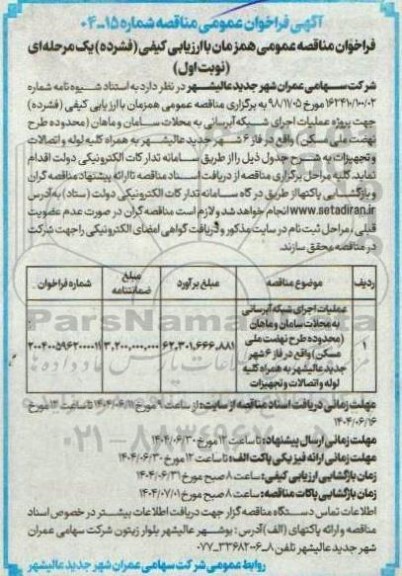 آگهی فراخوان عمومی مناقصه شماره ۱۵-۰۴
فراخوان مناقصه عمومی همزمان با ارزیابی کیفی (فشرده) یک مرحله ای
(نوبت اول)
شرکت سهامی عمران شهر جدید عالیشهر در نظر دارد به استناد شیوه نامه شماره
۱۶۲۴۱۰/۱۰۰/۰۲ مورخ ۹۸/۱۱/۰۵ به برگزاری مناقصه عمومی همزمان با ارزیابی کیفی (فشرده)
جهت پروژه عملیات اجرای شبکه آبرسانی به محلات سامان و ماهان (محدوده طرح
نهضت ملی مسکن) واقع در فاز ۶ شهر جدید عالیشهر به همراه کلیه لوله و اتصالات
و تجهیزات به شرح جدول ذیل را از طریق سامانه تدارکات الکترونیکی دولت اقدام
نماید. کلیه مراحل برگزاری مناقصه از دریافت اسناد مناقصه تا ارائه پیشنهاد مناقصه گران
و بازگشایی پاکتها از طریق درگاه سامانه تدارکات الکترونیکی دولت (ستاد) به آدرس
www.setadiran.ir انجام خواهد شد و لازم است مناقصه گران در صورت عدم عضویت
قبلی، مراحل ثبت نام در سایت مذکور و دریافت گواهی امضای الکترونیکی را جهت شرکت
در مناقصه محقق سازند.
ردیف موضوع مناقصه مبلغ برآورد مبلغ ضمانتنامه شماره فراخوان
عملیات اجرای شبکه آبرسانی
به محلات سامان و ماهان
(محدوده طرح نهضت ملی
۱ مسکن) واقع در فاز ۶ شهر ۶۲,۳۰۱,۶۶۶,۸۸۱ ۳,۲۰۰,۰۰۰,۰۰۰ ۲۰۰۴۰۰۵۹۶۲۰۰۰۰۱۱
جدید عالیشهر به همراه کلیه
لوله و اتصالات و تجهیزات
مهلت زمانی دریافت اسناد مناقصه از سایت: از ساعت ۹ مورخ ۱۴۰۴/۰۶/۱۵ تا ساعت ۱۴ مورخ
۱۴۰۴/۰۶/۱۶
مهلت زمانی ارسال پیشنهاد: تا ساعت ۱۲ مورخ ۱۴۰۴/۰۶/۳۰
مهلت زمانی ارائه فیزیکی پاکت الف: تا ساعت ۱۲ مورخ ۱۴۰۴/۰۶/۳۰
زمان بازگشایی ارزیابی کیفی: ساعت ۸ صبح مورخ ۱۴۰۴/۰۶/۳۱
زمان بازگشایی پاکات مناقصه: ساعت ۸ صبح مورخ ۱۴۰۴/۰۷/۰۱
اطلاعات تماس دستگاه مناقصه گزار جهت دریافت اطلاعات بیشتر در خصوص اسناد
مناقصه و ارائه پاکتهای (الف) آدرس: بوشهر عالیشهر بلوار زیتون شرکت سهامی عمران
شهر جدید عالیشهر تلفن ۸-۳۳۶۸۲۰۶-۰۷۷
روابط عمومی شرکت سهامی عمران شهر جدید عالیشهر
ParsNamad
۰۲۱-۸۸۳۴۹۶۷۰